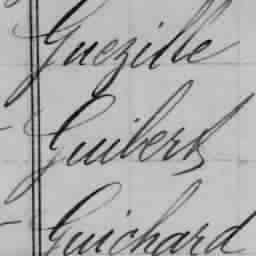 Guezille
Guibert
Guichard